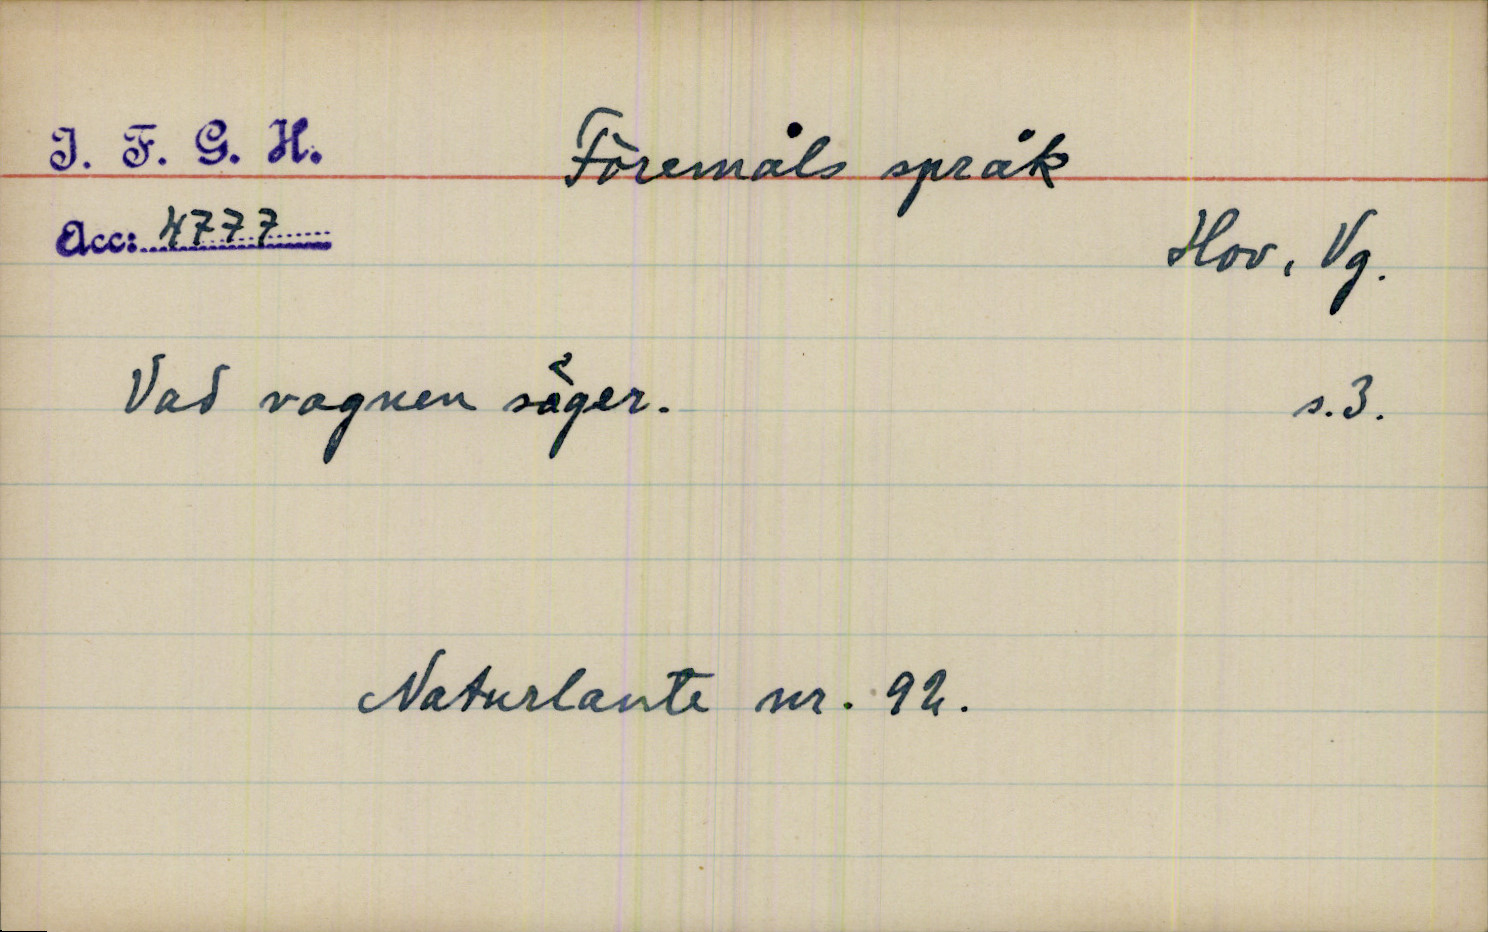 I. F. G. H.
Föremåls språk
Acc: 4777
Hov, Vg.
Vad vagnen säger. s. 3.
Naturlante nr. 92.